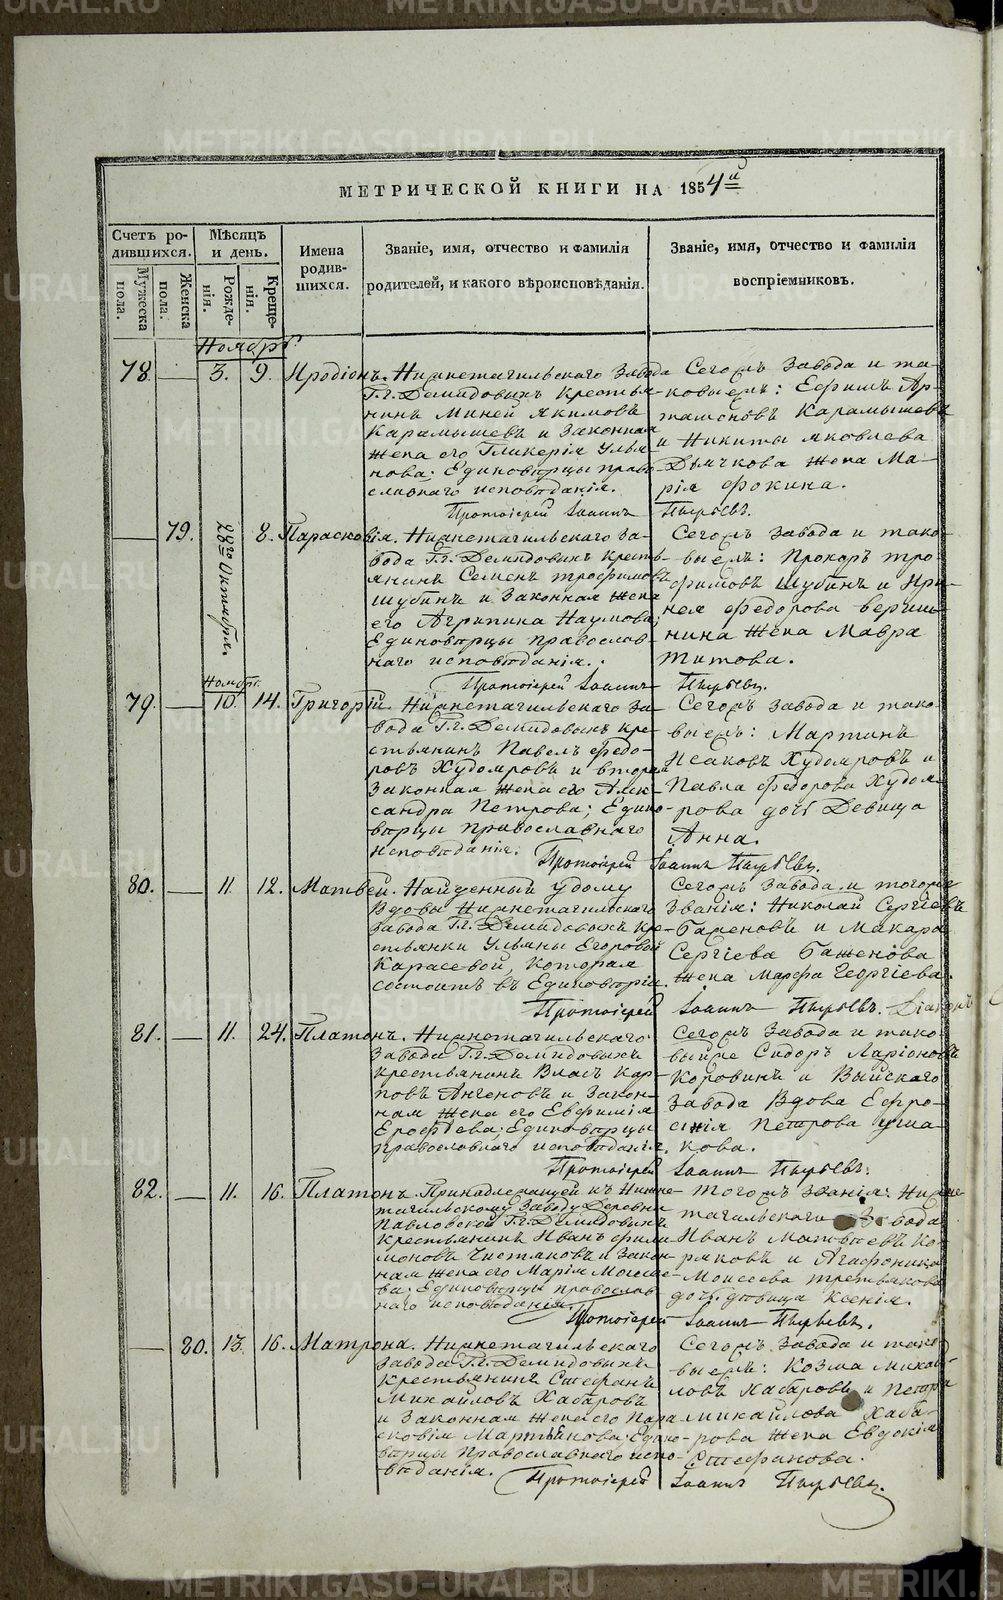 METRIKI.GASO-URAL.RU
МЕТРИЧЕСКОЙ КНИГИ НА 1854й
Счетъ родившихся.
Мужеска пола.
Женска пола.
Мѣсяцъ и день.
Рожденія.
Крещенія.
Имена родившихся.
Званіе, имя, отчество и фамилія
родителей, и какого вѣроисповѣданія.
Званіе, имя, отчество и фамилія
воспріемниковъ.
Ноябрь.
78. — 3. 9. Иродіонъ.
Нижнетагильскаго Завода
Г.г. Демидовыхъ Крестья-
нинъ Миней Якимовъ
Карамышевъ и Законная
жена его Гликерія Улья-
нова; Единоверцы право-
славнаго исповѣданія.
Сегожъ Завода и та-
ковыежъ: Ефимъ Ар-
тамоновъ Карамышевъ
и Никиты Яковлева
Дьячкова жена Ма-
рія Фокина.
Протоіерей Іоаннъ Пырьевъ.
— 79. 28го Октября. 8. Парасковія.
Нижнетагильскаго За-
вода Г.г. Демидовыхъ Кресть-
янинъ Семенъ Трофимовъ
Шубинъ и Законная жена
его Агрипина Наумова;
Единоверцы православ-
наго исповѣданія.
Сегожъ Завода и тако-
выежъ: Прохоръ Тро-
фимовъ Шубинъ и
Федорова Верши-
нина жена Мавра
Титова.
Протоіерей Іоаннъ Пырьевъ.
Ноябрь.
79. — 10. 14. Григорій.
Нижнетагильскаго За-
вода Г.г. Демидовыхъ Кре-
стьянинъ Павелъ Федо-
ровъ Худояровъ и вторая
Законная жена его Алек-
сандра Петрова; Едино-
верцы православнаго
исповѣданія.
Сегожъ Завода и тако-
выежъ: Мартинъ
Исаковъ Худояровъ и
Павла Федорова Худоя-
рова дочь Девица
Анна.
Протоіерей Іоаннъ Пырьевъ.
80. — 11. 12. Матвей.
Найденный у дому
Вдовы Нижнетагильскаго
Завода Г.г. Демидовыхъ Кре-
стьянки Ульяны Егоровой
Карасевой, которая
состоитъ въ Единоверіи.
Сегожъ Завода и тогоже
Званія: Николай Сергіевъ
Баженовъ и Макара
Сергіева Баженова
жена Марфа Георгіева.
Протоіерей Іоаннъ Пырьевъ. Діаконъ
81. — 11. 24. Платонъ.
Нижнетагильскаго
Завода Г.г. Демидовыхъ
Крестьянинъ Власъ Кар-
повъ и Закон-
ная жена его Евфимія
Ерофѣева; Единоверцы
православнаго исповѣданія.
Сегожъ Завода и тако-
выеже Сидоръ Ларіоновъ
Коровинъ и Выйскаго
Завода Вдова Ефро-
синія Петрова Уша-
кова.
Протоіерей Іоаннъ Пырьевъ.
82. — 11. 16. Платонъ.
Принадлежащей къ Нижне-
тагильскому Заводу Деревни
Павловской Г.г. Демидовыхъ
Крестьянинъ Иванъ Фили-
моновъ Чистяковъ и Закон-
ная жена его Марія Моисее-
ва; Единоверцы православ-
наго исповѣданія.
Тогожъ Званія: Нижне-
тагильскаго Завода
Иванъ Матвеевъ Ко-
ряковъ и Агафоника
Моисеева Третьякова
дочь девица Ксенія.
Протоіерей Іоаннъ Пырьевъ.
— 80. 13. 16. Матрона.
Нижнетагильскаго
Завода Г.г. Демидовыхъ
Крестьянинъ Стефанъ
Михайловъ Хабаровъ
и Законная жена его Пара-
сковія Мартьянова; Едино-
верцы православнаго испо-
вѣданія.
Сегожъ Завода и тако-
выежъ: Козма Михай-
ловъ Хабаровъ и Петра
Михайлова Хаба-
рова жена Евдокія
Стефанова.
Протоіерей Іоаннъ Пырьевъ.